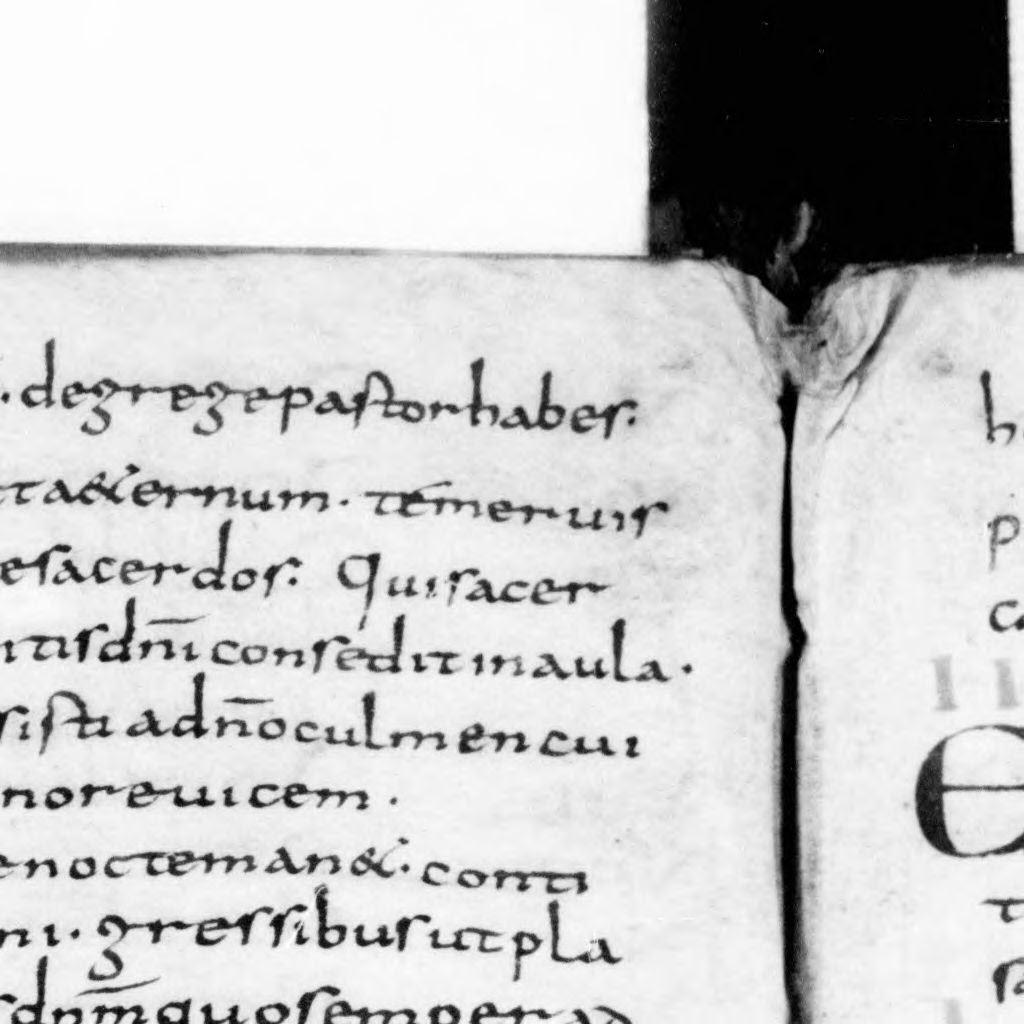 . degregepastorhabes:
ta&ernum. temeruis
esacerdos: Quisacer
itisdn̄i consedit in aula.
sisti adn̄o culmen cui
nore uicem.
enoctem an&. conti
ni. gressibus ut pla
sdn̄m quo semper ad
h
p
ca
II
e
t
sa